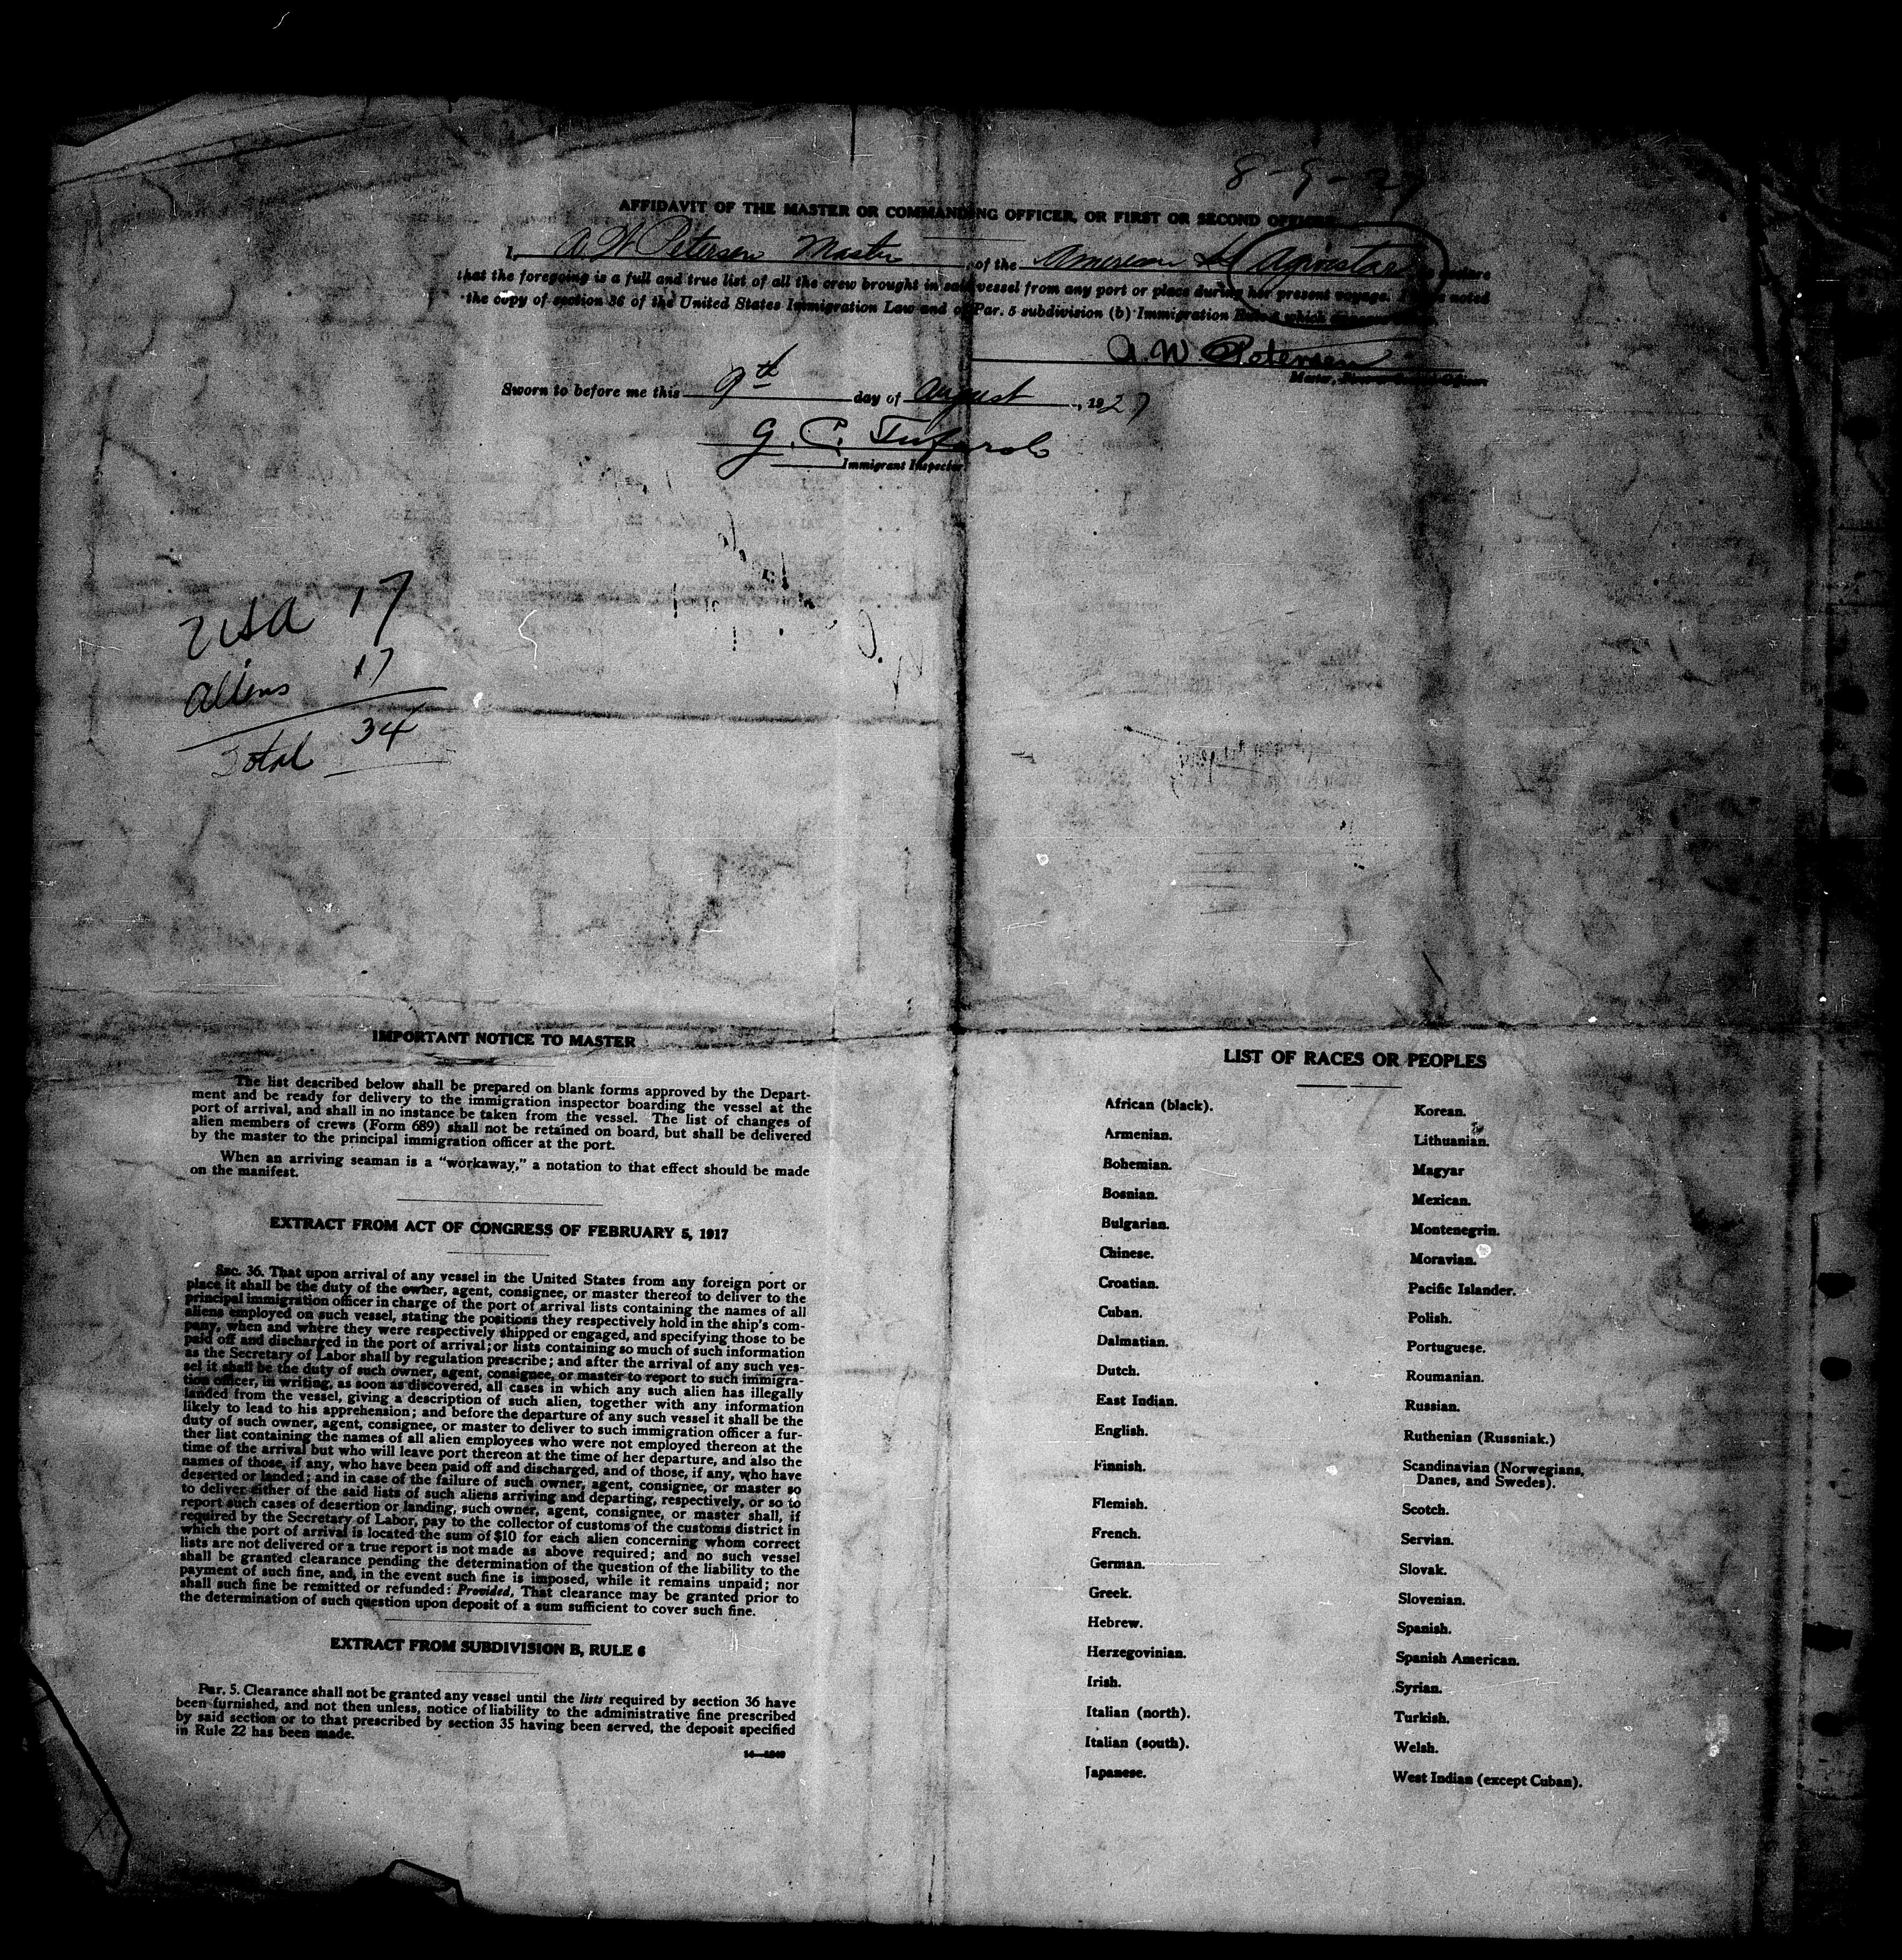 8-9-27
AFFIDAVIT OF THE MASTER OR COMMANDING OFFICER, OR FIRST OR SECOND OFFICER
I, A. W. Petersen Master, of the American
that the foregoing is a full and true list of all the crew brought in said vessel from any port or place during her present voyage. I have noted
the copy of section 36 of the United States Immigration Law and of Par. 5 subdivision (b) Immigration which
A. W. Petersen
Master,
Sworn to before me this 9th day of August, 1927
G. C.
Immigrant Inspector
USA 17
aliens 17
Total 34
IMPORTANT NOTICE TO MASTER
The list described below shall be prepared on blank forms approved by the Depart-
ment and be ready for delivery to the immigration inspector boarding the vessel at the
port of arrival, and shall in no instance be taken from the vessel. The list of changes of
alien members of crews (Form 689) shall not be retained on board, but shall be delivered
by the master to the principal immigration officer at the port.
When an arriving seaman is a "workaway," a notation to that effect should be made
on the manifest.
EXTRACT FROM ACT OF CONGRESS OF FEBRUARY 5, 1917
Sec. 36. That upon arrival of any vessel in the United States from any foreign port or
place it shall be the duty of the owner, agent, consignee, or master thereof to deliver to the
principal immigration officer in charge of the port of arrival lists containing the names of all
aliens employed on such vessel, stating the positions they respectively hold in the ship's com-
pany, when and where they were respectively shipped or engaged, and specifying those to be
paid off and discharged in the port of arrival; or lists containing so much of such information
as the Secretary of Labor shall by regulation prescribe; and after the arrival of any such ves-
sel it shall be the duty of such owner, agent, consignee, or master to report to such immigra-
tion officer, in writing, as soon as discovered, all cases in which any such alien has illegally
landed from the vessel, giving a description of such alien, together with any information
likely to lead to his apprehension; and before the departure of any such vessel it shall be the
duty of such owner, agent, consignee, or master to deliver to such immigration officer a fur-
ther list containing the names of all alien employees who were not employed thereon at the
time of the arrival but who will leave port thereon at the time of her departure, and also the
names of those, if any, who have been paid off and discharged, and of those, if any, who have
deserted or landed; and in case of the failure of such owner, agent, consignee, or master so
to deliver either of the said lists of such aliens arriving and departing, respectively, or so to
report such cases of desertion or landing, such owner, agent, consignee, or master shall, if
required by the Secretary of Labor, pay to the collector of customs of the customs district in
which the port of arrival is located the sum of $10 for each alien concerning whom correct
lists are not delivered or a true report is not made as above required; and no such vessel
shall be granted clearance pending the determination of the question of the liability to the
payment of such fine, and, in the event such fine is imposed, while it remains unpaid; nor
shall such fine be remitted or refunded: Provided, That clearance may be granted prior to
the determination of such question upon deposit of a sum sufficient to cover such fine.
EXTRACT FROM SUBDIVISION B, RULE 6
Par. 5. Clearance shall not be granted any vessel until the lists required by section 36 have
been furnished, and not then unless, notice of liability to the administrative fine prescribed
by said section or to that prescribed by section 35 having been served, the deposit specified
in Rule 22 has been made.
LIST OF RACES OR PEOPLES
African (black).
Armenian.
Bohemian.
Bosnian.
Bulgarian.
Chinese.
Croatian.
Cuban.
Dalmatian.
Dutch.
East Indian.
English.
Finnish.
Flemish.
French.
German.
Greek.
Hebrew.
Herzegovinian.
Irish.
Italian (north).
Italian (south).
Japanese.
Korean.
Lithuanian.
Magyar
Mexican.
Montenegrin.
Moravian.
Pacific Islander.
Polish.
Portuguese.
Roumanian.
Russian.
Ruthenian (Russniak.)
Scandinavian (Norwegians,
Danes, and Swedes).
Scotch.
Servian.
Slovak.
Slovenian.
Spanish.
Spanish American.
Syrian.
Turkish.
Welsh.
West Indian (except Cuban).